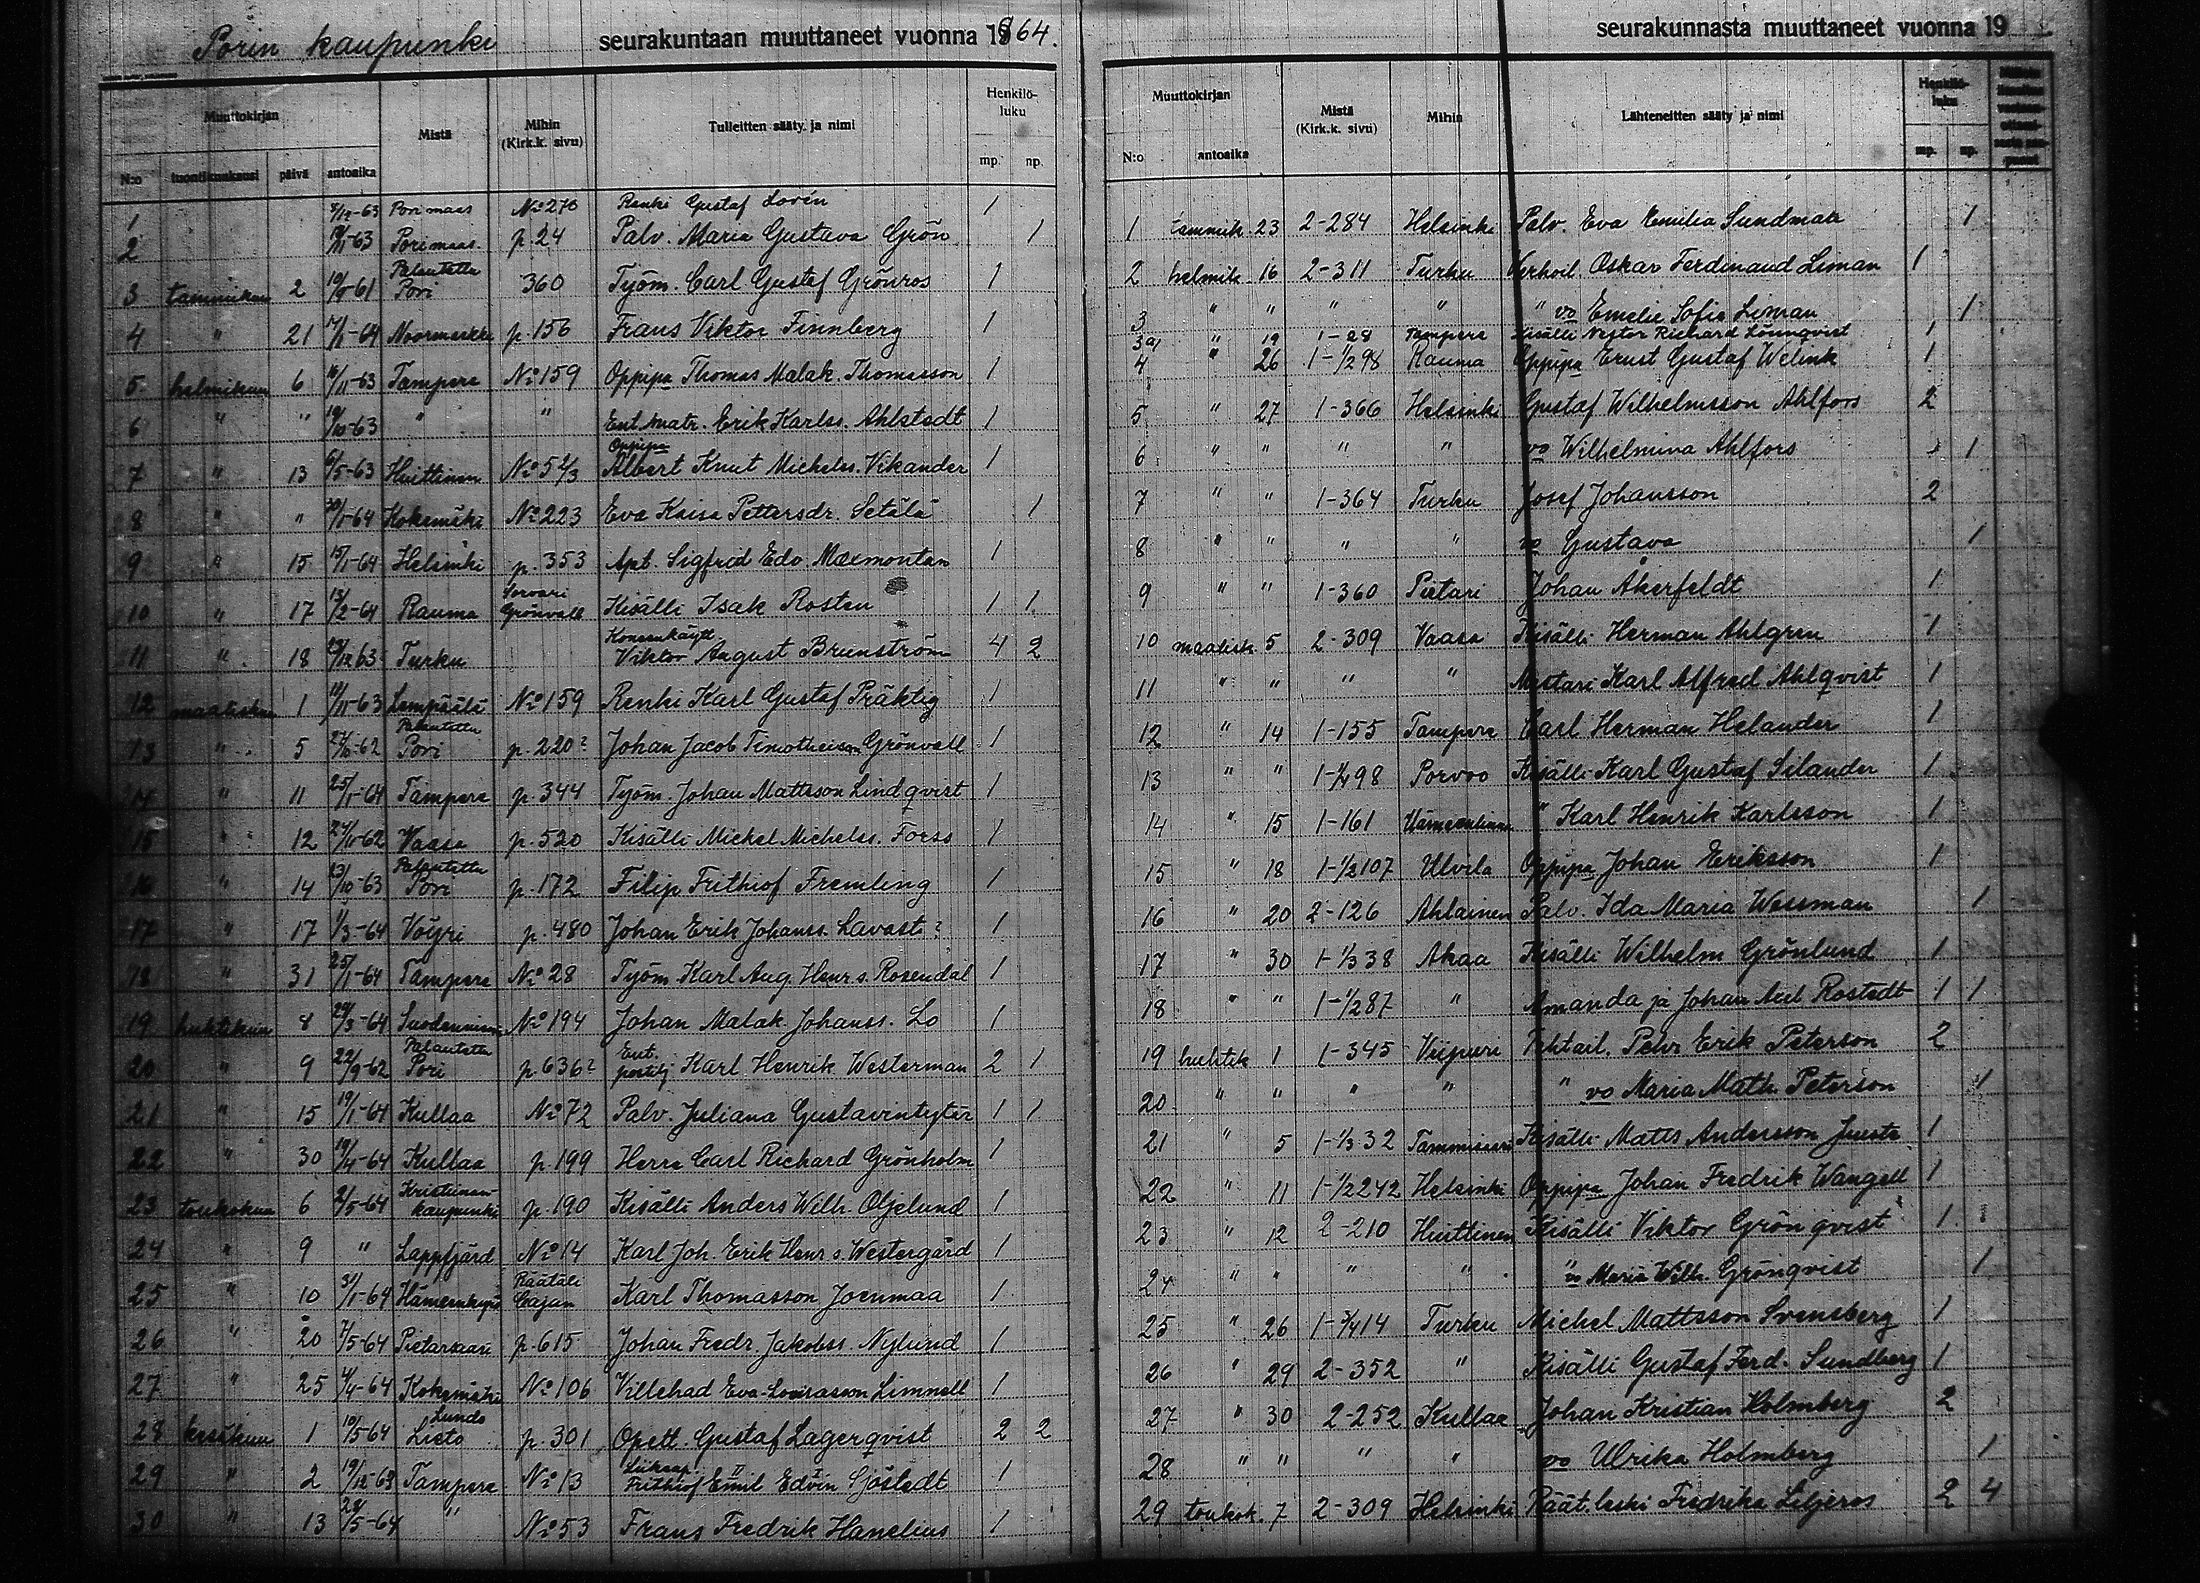 Porin kaupunki seurakuntaan muuttaneet vuonna 1864.
Muuttokirjan Mistä Mihin (Kirk.k. sivu) Tulleitten sääty ja nimi Henkilö-luku
N:o tuontikuukausi päivä antoaika mp. np.
1 8/12-63 Pori maas No 270 Renki Gustaf Lovén 1
2 /11-63 Pori maas. p. 24 Palv. Maria Gustava Grön 1
3 tammikuu 2 19/9-61 Palautettu Pori 360 Työm. Carl Gustaf Grönros 1
4 " 21 17/1-64 Noormarkku p. 156 Frans Viktor Finnberg 1
5 helmikuu 6 16/11-63 Tampere No 159 Oppipa Thomas Malak. Thomasson 1
6 " " 19/10-63 " " Ent. matr. Erik Karlss. Ahlstedt 1
7 " 13 6/5-63 Huittinen No 52/3 Oppipa Albert Knut Michelss. Vikander 1
8 " " 20/1-64 Kokemäki No 223 Eva Kaisa Pettersdr. Setälä 1
9 " 15 15/1-64 Helsinki p. 353 Apt. Sigfrid Edv. Maxmontan 1
10 " 17 13/2-64 Rauma Sorvari Grönvall Kisälli Isak Rosten 1 1
11 " 18 23/12 63 Turku Koneenkäytt. Viktor August Brunström 4 2
12 maaliskuu 1 18/11-63 Lempäälä No 159 Renki Karl Gustaf Präktig 1
13 " 5 27/6-62 Palautettu Pori p. 220? Johan Jacob Timotheisson Grönvall 1
14 " 11 25/1-64 Tampere p. 344 Työm. Johan Mattsson Lindqvist 1
15 " 12 24/11-62 Vaasa p. 520 Kisälli Mickel Michelss. Forss 1
16 " 14 23/10-63 Palautettu Pori p. 172 Filip Frithiof Fremling 1
17 " 17 1/3-64 Vöyri p. 480 Johan Erik Johanss. Lavasti? 1
18 " 31 25/1-64 Tampere No 28 Työm. Karl Aug. Henr.s. Rosendal 1
19 huhtikuu 8 29/3-64 Suodenniemi No 194 Johan Malak. Johanss. Lo 1
20 " 9 22/9-62 Palautettu Pori p. 636? Ent. postilj. Karl Henrik Westerman 2 1
21 " 15 19/1-64 Kullaa No 72 Palv. Juliana Gustavintytär 1 1
22 " 30 19/4-64 Kullaa p. 199 Herra Carl Richard Grönholm 1
23 toukokuu 6 2/5-64 Kristiinankaupunki p. 190 Kisälli Anders Wilh. Oljelund 1
24 " 9 " Lappfjärd No 14 Karl Joh. Erik Henr.s. Westergård 1
25 " 10 31/1-64 Hämeenkyrö Räätäli Cajan Karl Thomasson Joenmaa 1
26 " 20 7/5-64 Pietarsaari p. 615 Johan Fredr. Jakobss. Nylund 1
27 " 25 4/4-64 Kokemäki No 106 Villehad Eva-Lovisasson Limnell 1
28 kesäkuu 1 10/5-64 Lundo Lieto p. 301 Opett. Gustaf Lagerqvist 2 2
29 " 2 19/12-63 Tampere No 13 Frithiof Emil Edvin Sjöstedt 1
30 " 13 28/5-64 " No 53 Frans Fredrik Hanelius 1
seurakunnasta muuttaneet vuonna 19
Muuttokirjan Mistä (Kirk.k. sivu) Mihin Lähteneitten sääty ja nimi Henkilö-luku
N:o antoaika mp. np.
1 tammik. 23 2-284 Helsinki Palv. Eva Emilia Sundman 1
2 helmik. 16 2-311 Turku Verhoil. Oskar Ferdinand Liman 1
3 " " " " " vo Emelie Sofia Liman 1
3a) " 19 1-28 Tampere Kisälli Nestor Richard Lönnqvist 1
4 " 26 1-1/298 Rauma Oppipa Ernst Gustaf Welink 1
5 " 27 1-366 Helsinki Gustaf Wilhelmsson Ahlfors 2
6 " " " " vo Wilhelmina Ahlfors 1
7 " " 1-364 Turku Josef Johansson 2
8 " " " " vo Gustava 1
9 " " 1-360 Pietari Johan Åkerfeldt 1
10 maalisk. 5 2-309 Vaasa Kisälli Herman Ahlgren 1
11 " " " " Mestari Karl Alfred Ahlqvist 1
12 " 14 1-155 Tampere Carl Herman Helander 1
13 " " 1-1/298 Porvoo Kisälli Karl Gustaf Silander 1
14 " 15 1-161 Hämeenlinna " Karl Henrik Karlsson 1
15 " 18 1-1/2107 Ulvila Oppipa Johan Eriksson 1
16 " 20 2-126 Ahlainen Palv. Ida Maria Wessman 1
17 " 30 1-1/338 Akaa Kisälli Wilhelm Grönlund 1
18 " " 1-1/287 " Amanda ja Johan Aul Rostedt 1 1
19 huhtik 1 1-345 Viipuri Tehtail. Pehr Erik Peterson 2
20 " " " " " vo Maria Math. Peterson 1
21 " 5 1-1/332 Tammisaari Kisälli Matts Andersson Juusta 1
22 " 11 1-1/2242 Helsinki Oppipa Johan Fredrik Wangell 1
23 " 12 2-210 Huittinen Kisälli Viktor Grönqvist 1
24 " " " " " vo Maria Wilh. Grönqvist 1
25 " 26 1-3/414 Turku Michel Mattsson Svensberg 1
26 " 29 2-352 " Kisälli Gustaf Ferd. Sundberg 1
27 " 30 2-252 Kullaa Johan Kristian Holmberg 2
28 " " " " vo Ulrika Holmberg 1
29 toukok. 7 2-309 Helsinki Räät. leski Fredrika Liljeros 2 4